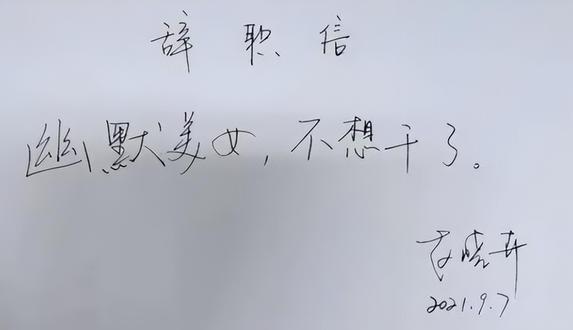 辞职信
幽默美女，不想干了。
李晓卉
2021.9.7